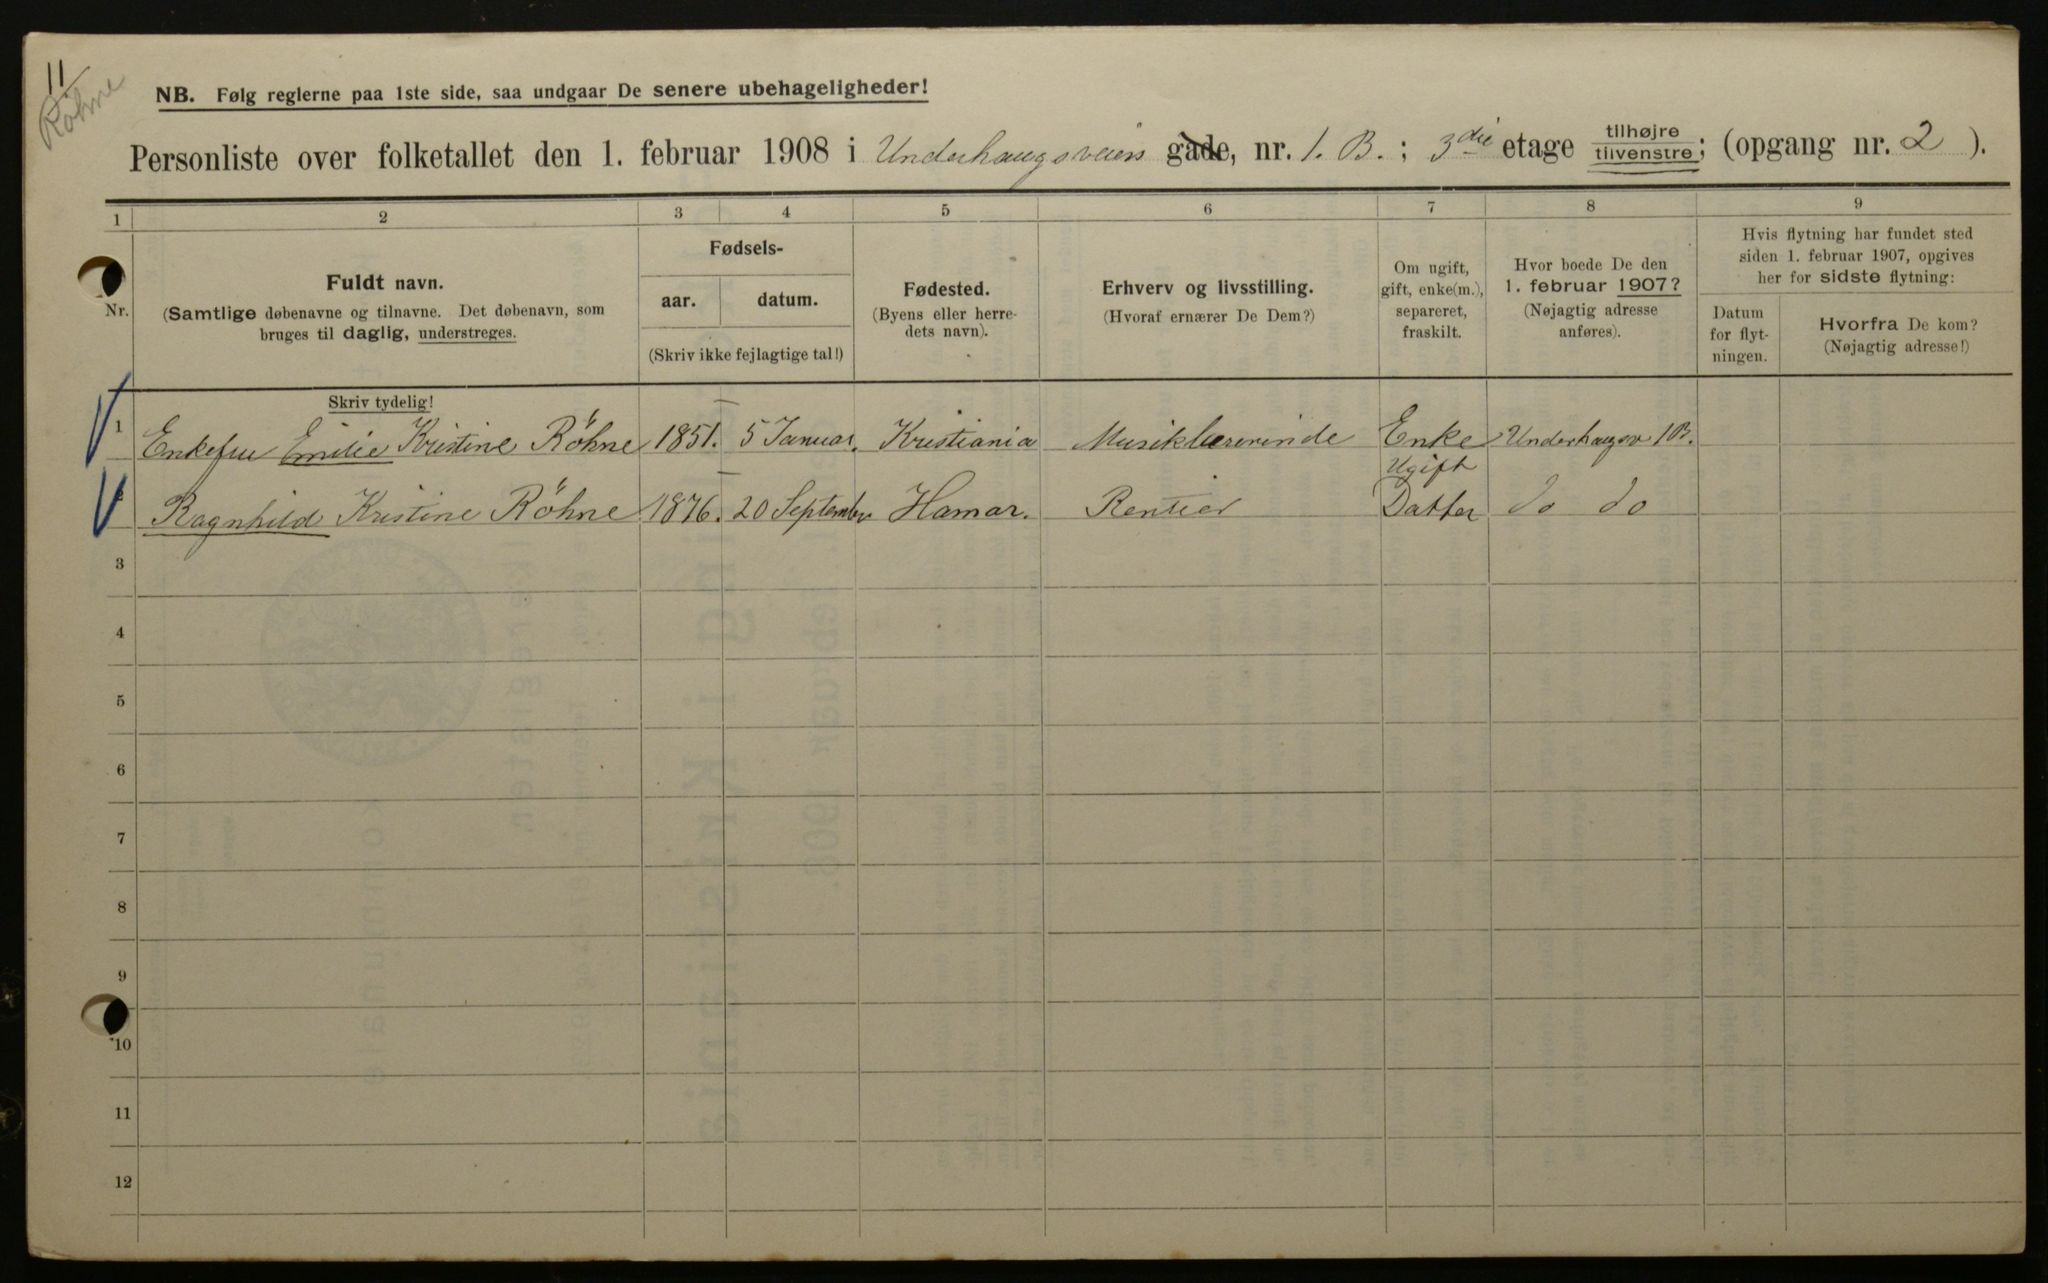 11
Røhne
NB. Følg reglerne paa 1ste side, saa undgaar De senere ubehageligheder!
Personliste over folketallet den 1. februar 1908 i Underhaugsveien gade, nr. 1. B. ; 3die etage tilhøjre tilvenstre; (opgang nr. 2 ).
1 2 3 4 5 6 7 8 9
Nr.
Fuldt navn.
(Samtlige døbenavne og tilnavne. Det døbenavn, som
bruges til daglig, understreges.
Skriv tydelig!
Fødsels-
aar. datum.
(Skriv ikke fejlagtige tal!)
Fødested.
(Byens eller herre-
dets navn).
Erhverv og livsstilling.
(Hvoraf ernærer De Dem?)
Om ugift,
gift, enke(m.),
separeret,
fraskilt.
Hvor boede De den
1. februar 1907?
(Nøjagtig adresse
anføres).
Hvis flytning har fundet sted
siden 1. februar 1907, opgives
her for sidste flytning:
Datum
for flyt-
ningen.
Hvorfra De kom?
(Nøjagtig adresse!)
1 Enkefru Emilie Kristine Röhne 1851. 5 Januar. Kristiania Musiklærerinde Enke Underhaugsv 1B.
Ugift
2 Ragnhild Kristine Röhne 1876. 20 September Hamar. Rentier Datter do do
3
4
5
6
7
8
9
10
11
12